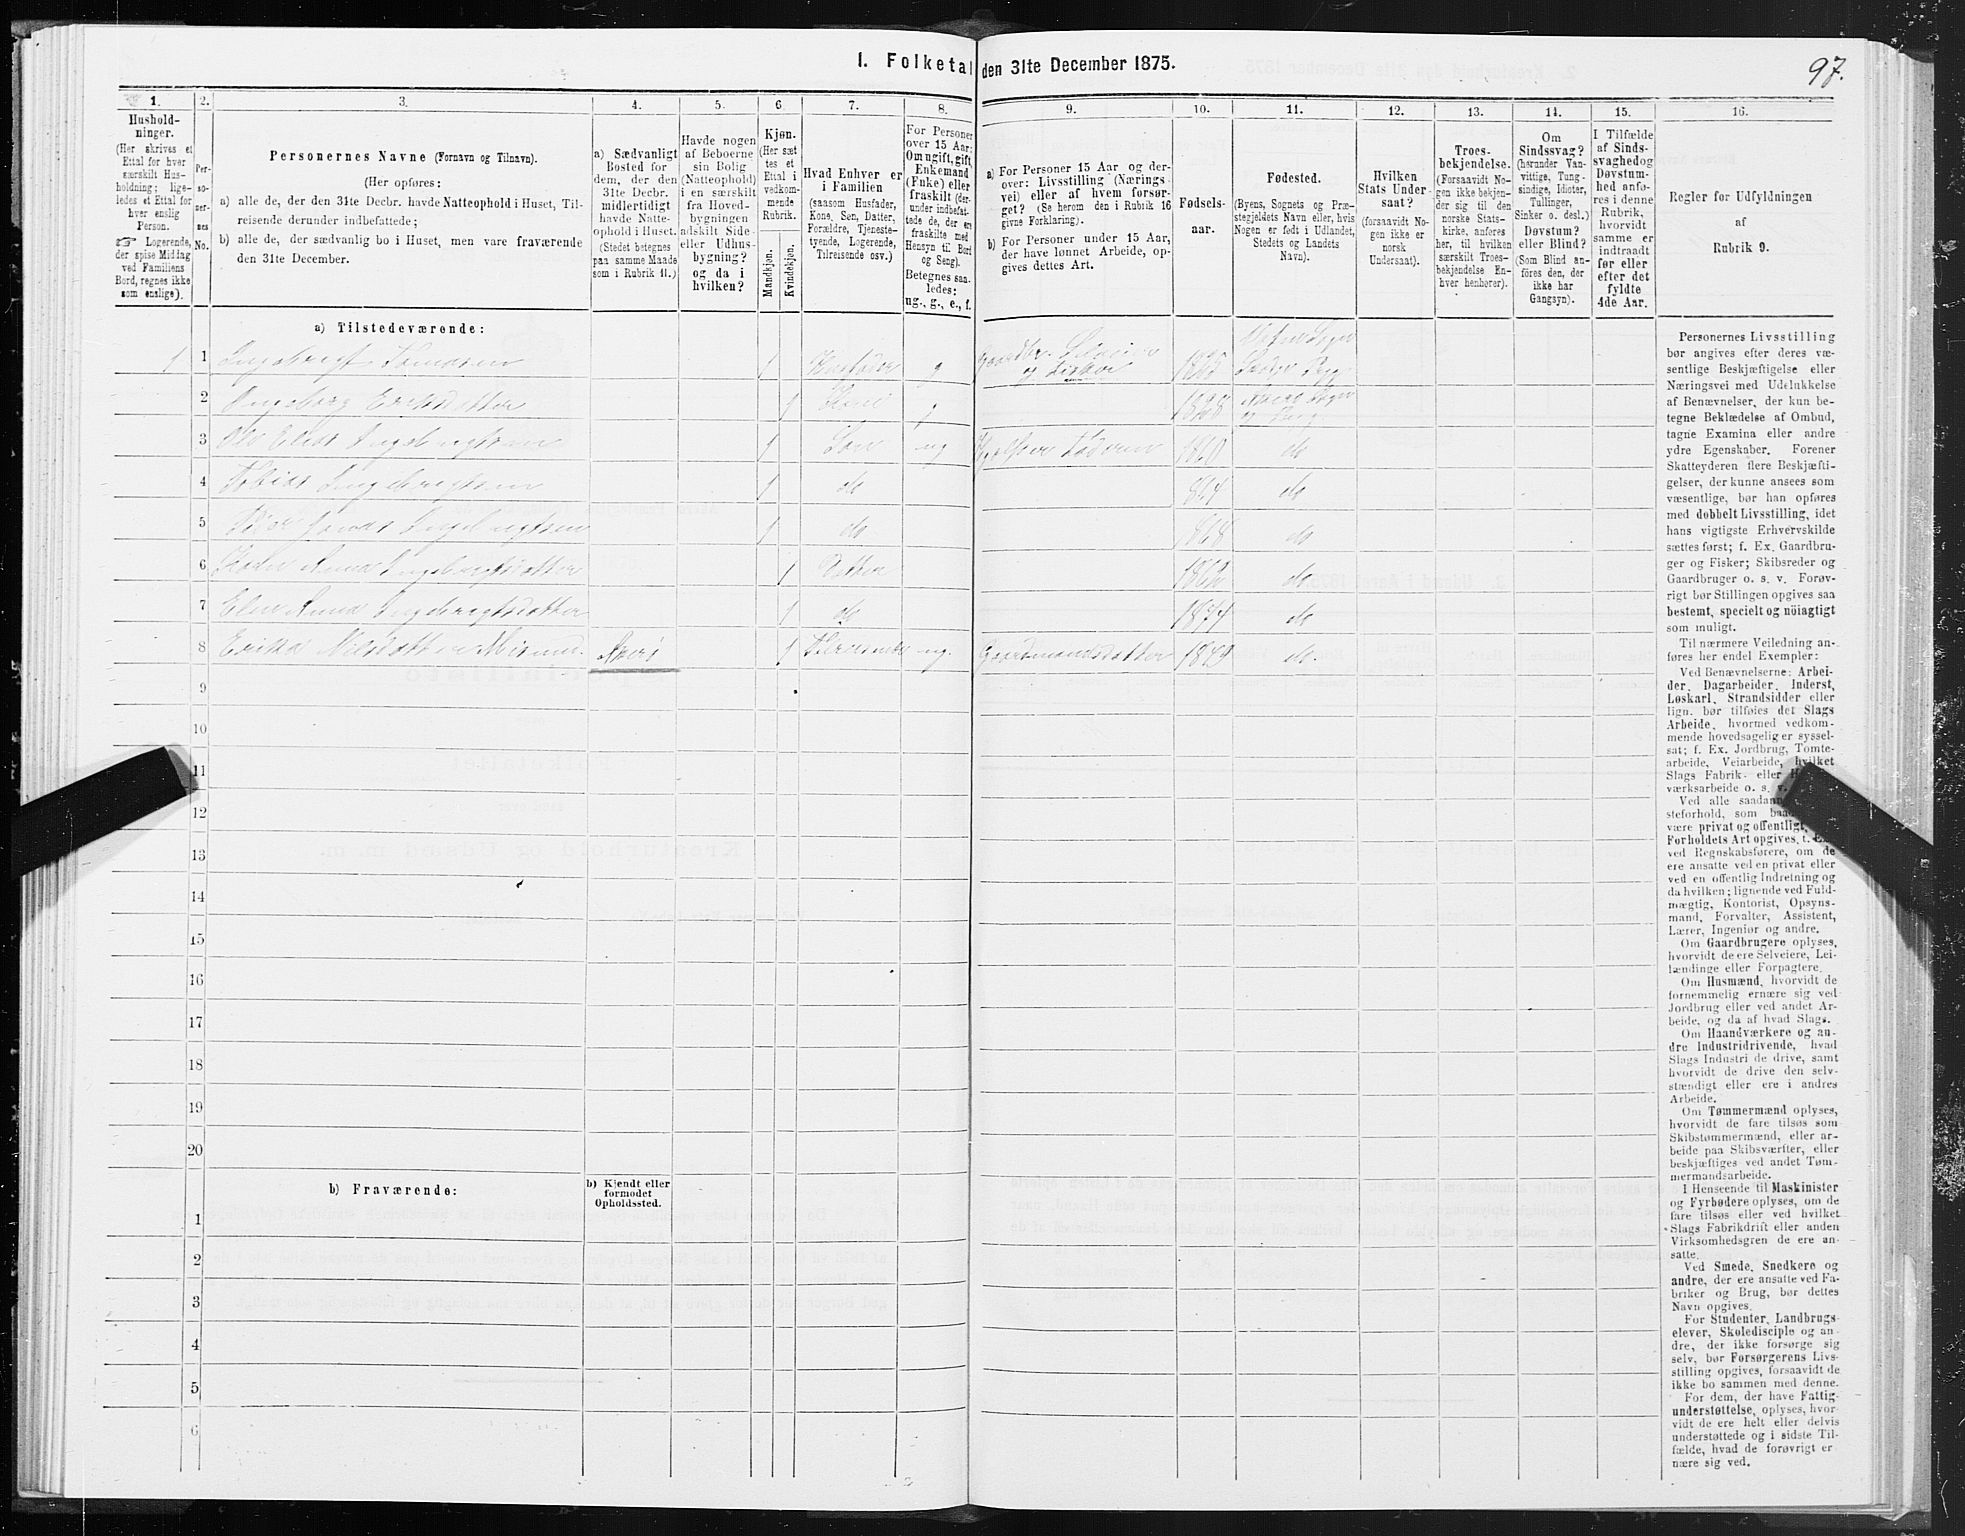 1. Folketal den 31te December 1875.
97.
1.
2.
3.
4.
5.
6.
7.
8.
9.
10.
11.
12.
13.
14.
15.
16.
Hushold-
ninger.
(Her skrives et
Ettal for hver
særskilt Hus-
holdning; lige-
ledes et Ettal for
hver enslig
Person.
☞ Logerende,
der spise Middag
ved Familiens
Bord, regnes ikke
som enslige).
Per-
so-
ner-
nes
No.
Personernes Navne (Fornavn og Tilnavn).
(Her opføres:
a) alle de, der den 31te Decbr. havde Natteophold i Huset, Til-
reisende derunder indbefattede;
b) alle de, der sædvanlig bo i Huset, men vare fraværende
den 31te December.
a) Sædvanligt
Bosted for
dem, der den
31te Decbr.
midlertidigt
havde Natte-
ophold i Huset.
(Stedet betegnes
paa samme Maade
som i Rubrik 11.)
Havde nogen
af Beboerne
sin Bolig
(Natteophold)
i en særskilt
fra Hoved-
bygningen
adskilt Side-
eller Udhus-
bygning?
og da i
hvilken?
Kjøn.
(Her sæt-
tes et
Ettal i
vedkom-
mende
Rubrik.
Mandkjøn.
Kvindekjøn.
Hvad Enhver er
i Familien
(saasom Husfader,
Kone, Søn, Datter,
Forældre, Tjeneste-
tyende, Logerende,
Tilreisende osv.)
For Personer
over 15 Aar:
Om ugift, gift,
Enkemand
(Enke) eller
fraskilt (der-
under indbefat-
tede de, der ere
fraskilte med
Hensyn til Bord
og Seng).
Betegnes saa-
ledes:
ug., g., e., f.
a) For Personer 15 Aar og der-
over: Livsstilling (Nærings-
vei) eller af hvem forsør-
get? (Se herom den i Rubrik 16
givne Forklaring).
b) For Personer under 15 Aar,
der have lønnet Arbeide, op-
gives dettes Art.
Fødsels-
aar.
Fødested.
(Byens, Sognets og Præ-
stegjeldets Navn eller, hvis
Nogen er født i Udlandet,
Stedets og Landets
Navn).
Hvilken
Stats Under-
saat?
(forsaavidt No-
gen ikke er
norsk
Undersaat).
Troes-
bekjendelse.
(Forsaavidt No-
gen ikke bekjen-
der sig til den
norske Stats-
kirke, anføres
her, til hvilken
særskilt Troes-
bekjendelse En-
hver henhører).
Om
Sindssvag?
(herunder Van-
vittige, Tung-
sindige, Idioter,
Tullinger,
Sinker o. desl.)
Døvstum?
eller Blind?
(Som Blind an-
føres den, der
ikke har
Gangsyn).
I Tilfælde
af Sinds-
svaghed og
Døvstum-
hed anfø-
res i denne
Rubrik,
hvorvidt
samme er
indtraadt
før eller
efter det
fyldte
4de Aar.
Regler for Udfyldningen
af
Rubrik 9.
a) Tilstedeværende:
1 1 Ingebrigt 1 Husfader g Gaardbr. Selveier
og Fisker
2 Ingeborg Eriksdatter 1 Kone g
3 Ole Elias Ingebrigtsen 1 Søn ug Hjælper Faderen 1860 do
4 Tobias Ingebrigtsen 1 do 1864 do
5 Peer Ingebrigtsen 1 do 1868 do
6 Anna Ingebrigtsdatter 1 Datter do
7 Elen Anna Ingebrigtsdatter 1 do 1874 do
8 Erika Nilsdatter 1 ug. Gaardmandsdatter 1849 do.
9
10
11
12
13
14
15
16
17
18
19
20
b) Fraværende:
b) Kjendt eller
formodet
Opholdssted.
1
2
3
4
5
6
Personernes Livsstilling
bør angives efter deres væ-
sentlige Beskjæftigelse eller
Næringsvei med Udelukkelse
af Benævnelser, der kun be-
tegne Beklædelse af Ombud,
tagne Examina eller andre
ydre Egenskaber. Forener
Skatteyderen flere Beskjæfti-
gelser, der kunne ansees som
væsentlige, bør han opføres
med dobbelt Livsstilling, idet
hans vigtigste Erhvervskilde
sættes først; f. Ex. Gaardbru-
ger og Fisker; Skibsreder og
Gaardbruger o. s. v. Forøv-
rigt bør Stillingen opgives saa
bestemt, specielt og nöiagtigt
som muligt.
Til nærmere Veiledning an-
føres her endel Exempler:
Ved Benævnelserne: Arbei-
der, Dagarbeider, Inderst,
Løskarl, Strandsidder eller
lign. bør tilføies det Slags
Arbeide, hvormed vedkom-
mende hovedsagelig er syssel-
sat; f. Ex. Jordbrug, Tomte-
arbeide, Veiarbeide, hvilket
Slags Fabrik- eller
værksarbeide o. s. v.
Ved alle saadann
steforhold, som
være privat og offentligt,
Forholdets Art opgives, t. Ex.
ved Regnskabsførere, om de
ere ansatte ved en privat eller
ved en offentlig Indretning og
da hvilken; lignende ved Fuld-
mægtig, Kontorist, Opsyns-
mand, Forvalter, Assistent,
Lærer, Ingeniør og andre.
Om Gaardbrugere oplyses,
hvorvidt de ere Selveiere, Lei-
lændinge eller Forpagtere.
Om Husmænd, hvorvidt de
fornemmelig ernære sig ved
Jordbrug eller ved andet Ar-
beide, og da af hvad Slags.
Om Haandværkere og an-
dre Industridrivende, hvad
Slags Industri de drive, samt
hvorvidt de drive den selv-
stændigt eller ere i andres
Arbeide.
Om Tømmermænd oplyses,
hvorvidt de fare tilsøs som
Skibstømmermænd, eller ar-
beide paa Skibsværfter, eller
beskjæftiges ved andet Tøm-
mermandsarbeide.
I Henseende til Maskinister
og Fyrbødere oplyses, om de
fare tilsøs eller ved hvilket
Slags Fabrikdrift eller anden
Virksomhedsgren de ere an-
satte.
Ved Smede, Snedkere og
andre, der ere ansatte ved Fa-
briker og Brug, bør dettes
Navn opgives.
For Studenter, Landbrugs-
elever, Skoledisciple og an-
dre, der ikke forsørge sig
selv, bør Forsørgerens Livs-
stilling opgives, forsaavidt de
ikke bo sammen med denne.
For dem, der have Fattig-
understøttelse, oplyses, hvor-
vidt de ere helt eller delvis
understøttede og i sidste Til-
fælde, hvad de forøvrigt er-
nære sig ved.